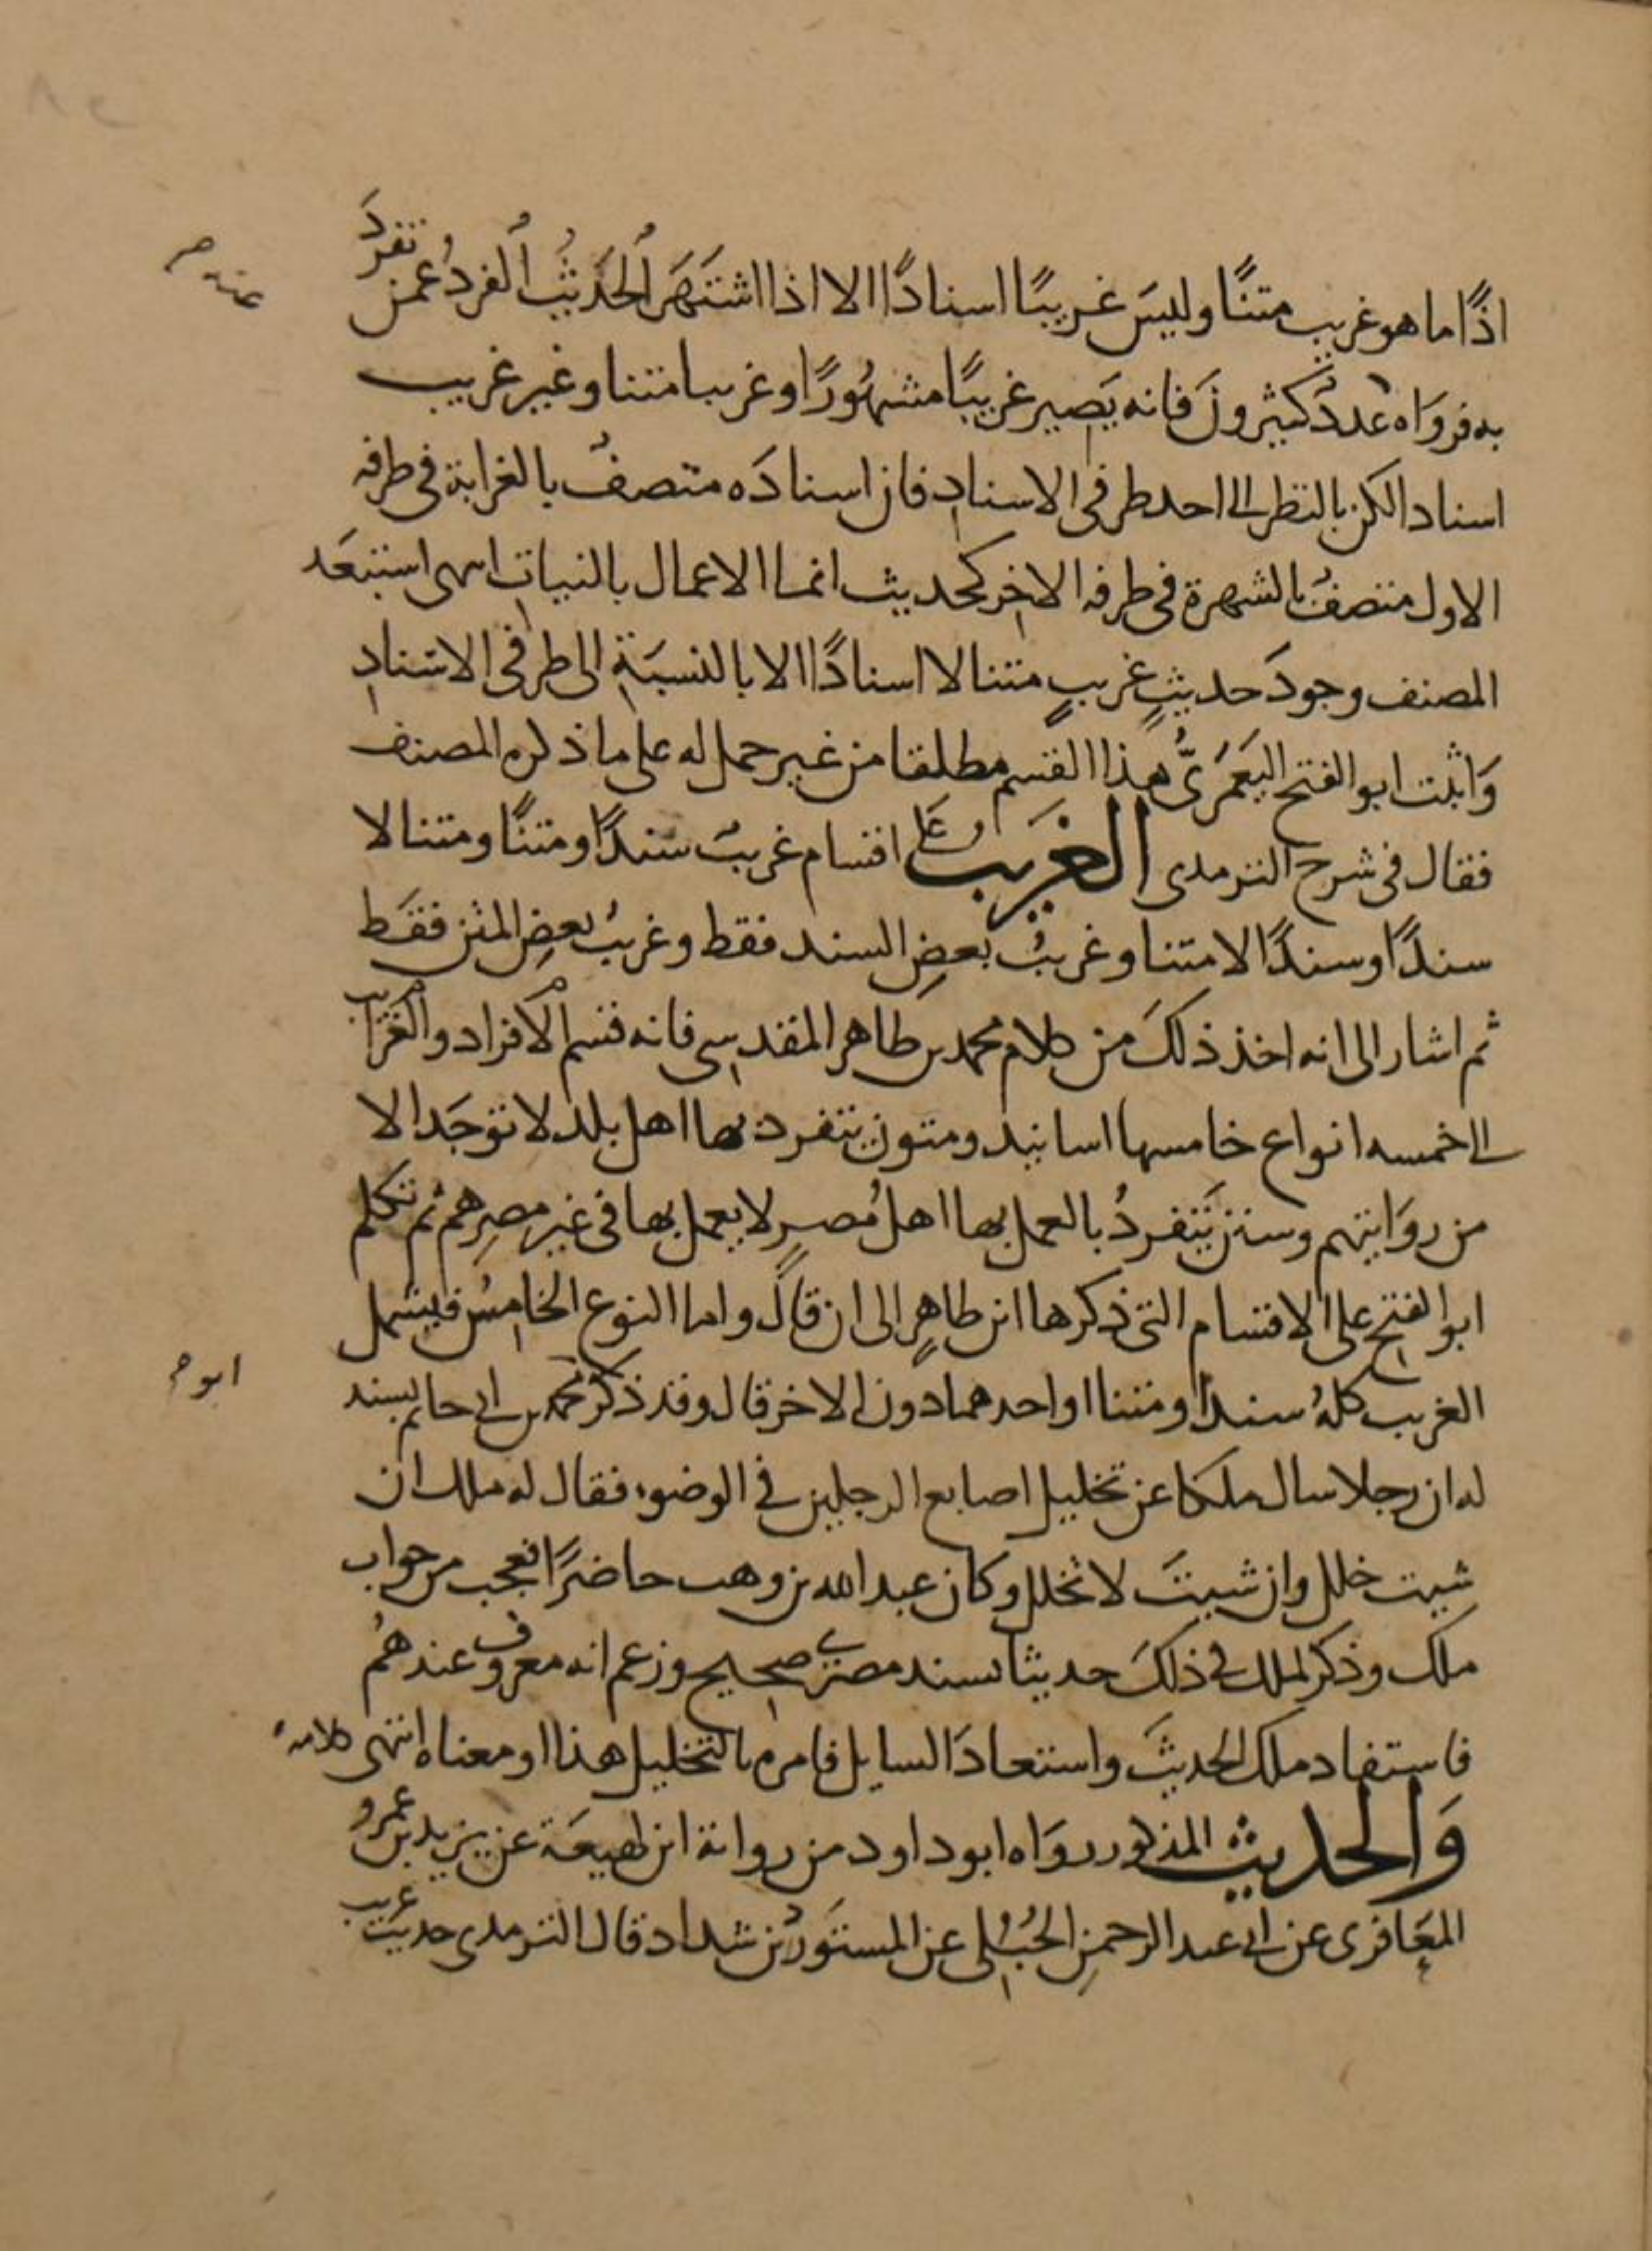 اذًا ما هو غريب متنًا وليسَ غريبًا اسنادًا الا اذا اشتَهَرَ الحَديثُ الفردُ عمن تفردَ
به فروَاه عنه عددٌ كثيرونَ فانه يَصير غريبًا مشهُورًا وغريبا متنا وغير غريب
اسنادا لكن بالنظر الى احد طرفى الاسنادِ فان اسنادَه متصفٌ بالغرابة فى طرفه
الاول متصفٌ بالشهرة فى طرفه الاخر كحديث انما الاعمال بالنيات انتهى استبعَد
المصنف وجودَ حديثٍ غريبٍ متنا لا اسنادًا الا بالنسبَةِ الى طرفى الاسنادِ
وَاثبت ابو الفتح اليَعمَرىُّ هذا القسم مطلقا من غير حمل له على ما ذكره المصنف
فقال فى شرح الترمدى الغَريب على اقسام غريبٌ سندًا ومتنًا ومتنا لا
سندًا وسندًا لا متنا وغريبُ بعضِ السند فقط وغريبُ بعضِ المتن فقط
ثم اشار الى انه اخذ ذلكَ من كلام محمد بن طاهر المقدسى فانه قسم الافراد والغرايب
الى خمسه انواع خامسها اسانيد ومتون يتفرد بها اهل بلد لا توجَد الا
من روَايتهم وسنن يَتفردُ بالعمل بها اهل مُصرٍ لا يعمل بها فى غير مصرِهم ثم تكلم
ابو الفتح على الاقسام التى ذكرها ابن طاهرٍ الى ان قالَ واما النوع الخامسُ فيشمل
الغريب كلهُ سندًا ومتنا او احدهما دون الاخر قال وقد ذكر محمد بن ابى حاتم بسند
له ان رجلا سال ملكا عن تخليل اصابع الرجلين فى الوضوء فقال له ملك ان
شيت خلل وان شيتَ لا تخلل وكان عبد الله بن وهب حاضرًا فعجب من جواب
ملك وذكر لملك فى ذلكَ حديثا بسند مصرى صحيح وزعم انه معروف عندهُم
فاستفاد ملك الحديثَ واستعادَ السايل فامره بالتخليل هذا او معناه انتهى كلامه
وَالحديث المذكور روَاه ابو داود من رواية ابن لهيعَة عن يزيد بن عمرو
المعَافرى عن ابى عبد الرحمنِ الحُبُلى عن المستَوردُ بن شداد قال الترمدى حديث غريب
عنه صح
ابو م